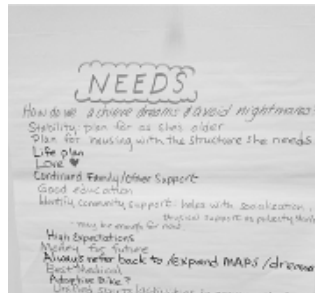 NEEDS
How do we achieve dreams & avoid nightmares?
Stability: plan for as she's older
Plan for housing with the structure she needs
Life plan
Love ♥
Continued Family/Other Support
Good education
Identify community support: helps with socialization,
physical support as puberty
- may be enough for now
High Expectations
Money for future
Always refer back to/expand MAPS /dreams
Best Medical
Adaptive Bike?